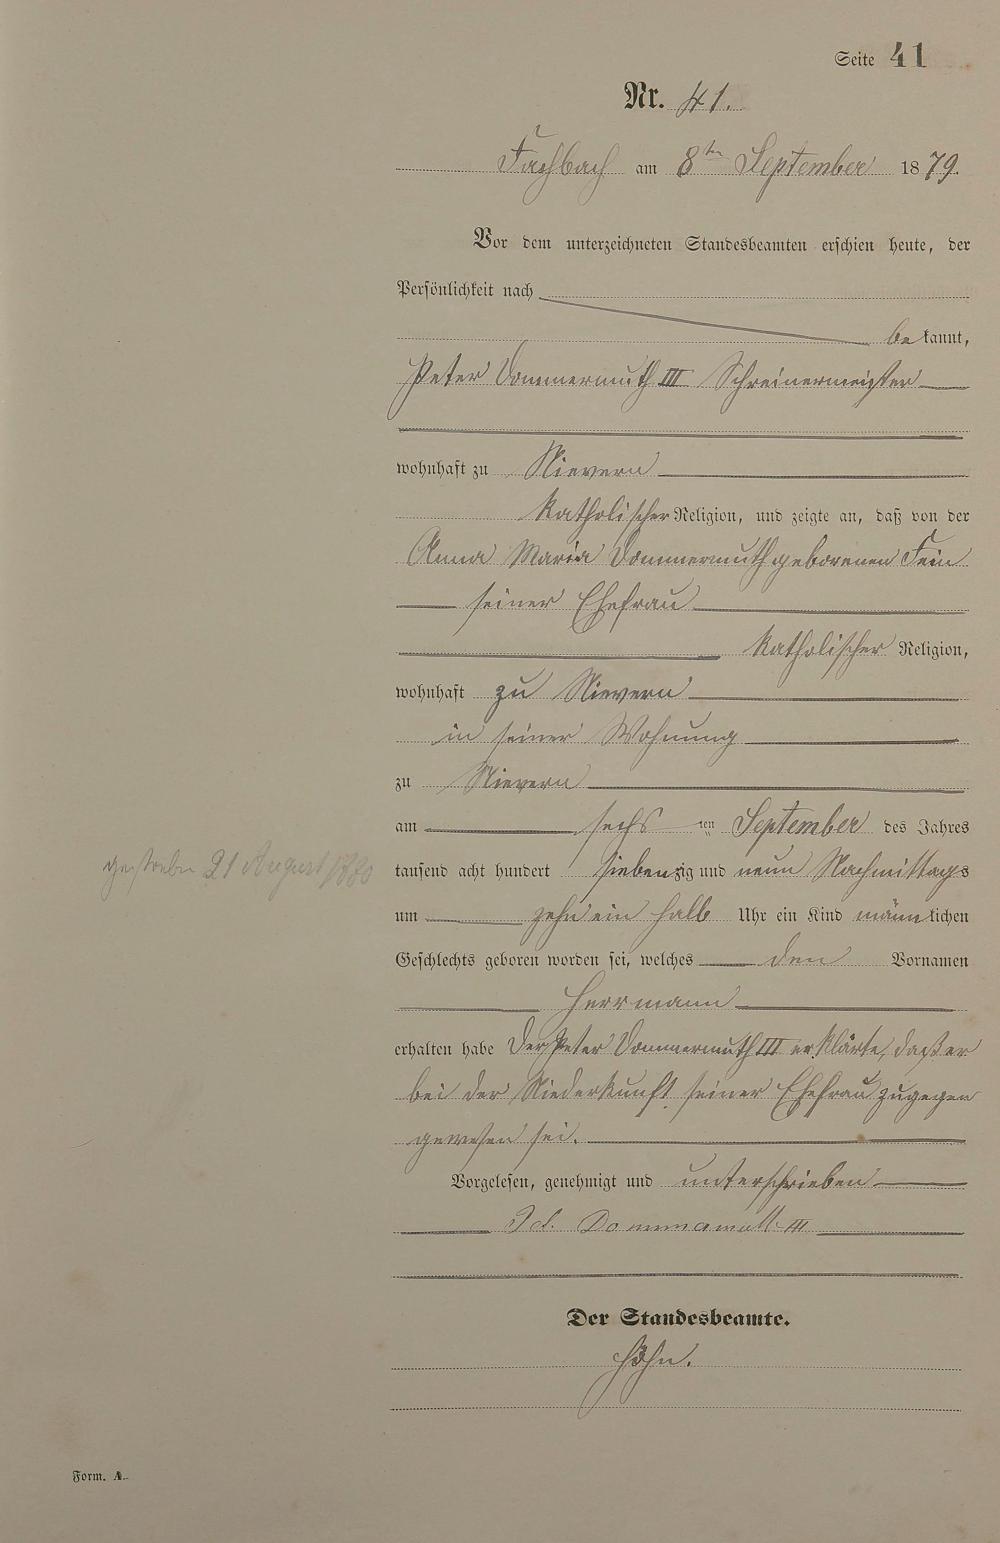 Seite 41
Nr. 41.
Fachbach am 8ten September 1879.
Vor dem unterzeichneten Standesbeamten erschien heute, der
Persönlichkeit nach
bekannt,
Peter Dommermuth III Schreinermeister
wohnhaft zu Nievern
katholischer Religion, und zeigte an, daß von der
Anna Maria Dommermuth geborenen Fein
seiner Ehefrau
katholischer Religion,
wohnhaft zu Nievern
in seiner Wohnung
zu Nievern
am sechsten September des Jahres
gestorben 21 August 1880
tausend acht hundert siebenzig und neun Nachmittags
um zehn ein halb Uhr ein Kind männlichen
Geschlechts geboren worden sei, welches den Vornamen
Herrmann
erhalten habe Der Peter Dommermuth III erklärte, daß er
bei der Niederkunft seiner Ehefrau zugegen
gewesen sei.
Vorgelesen, genehmigt und unterschrieben
III
Der Standesbeamte.
Höhn.
Form. A.